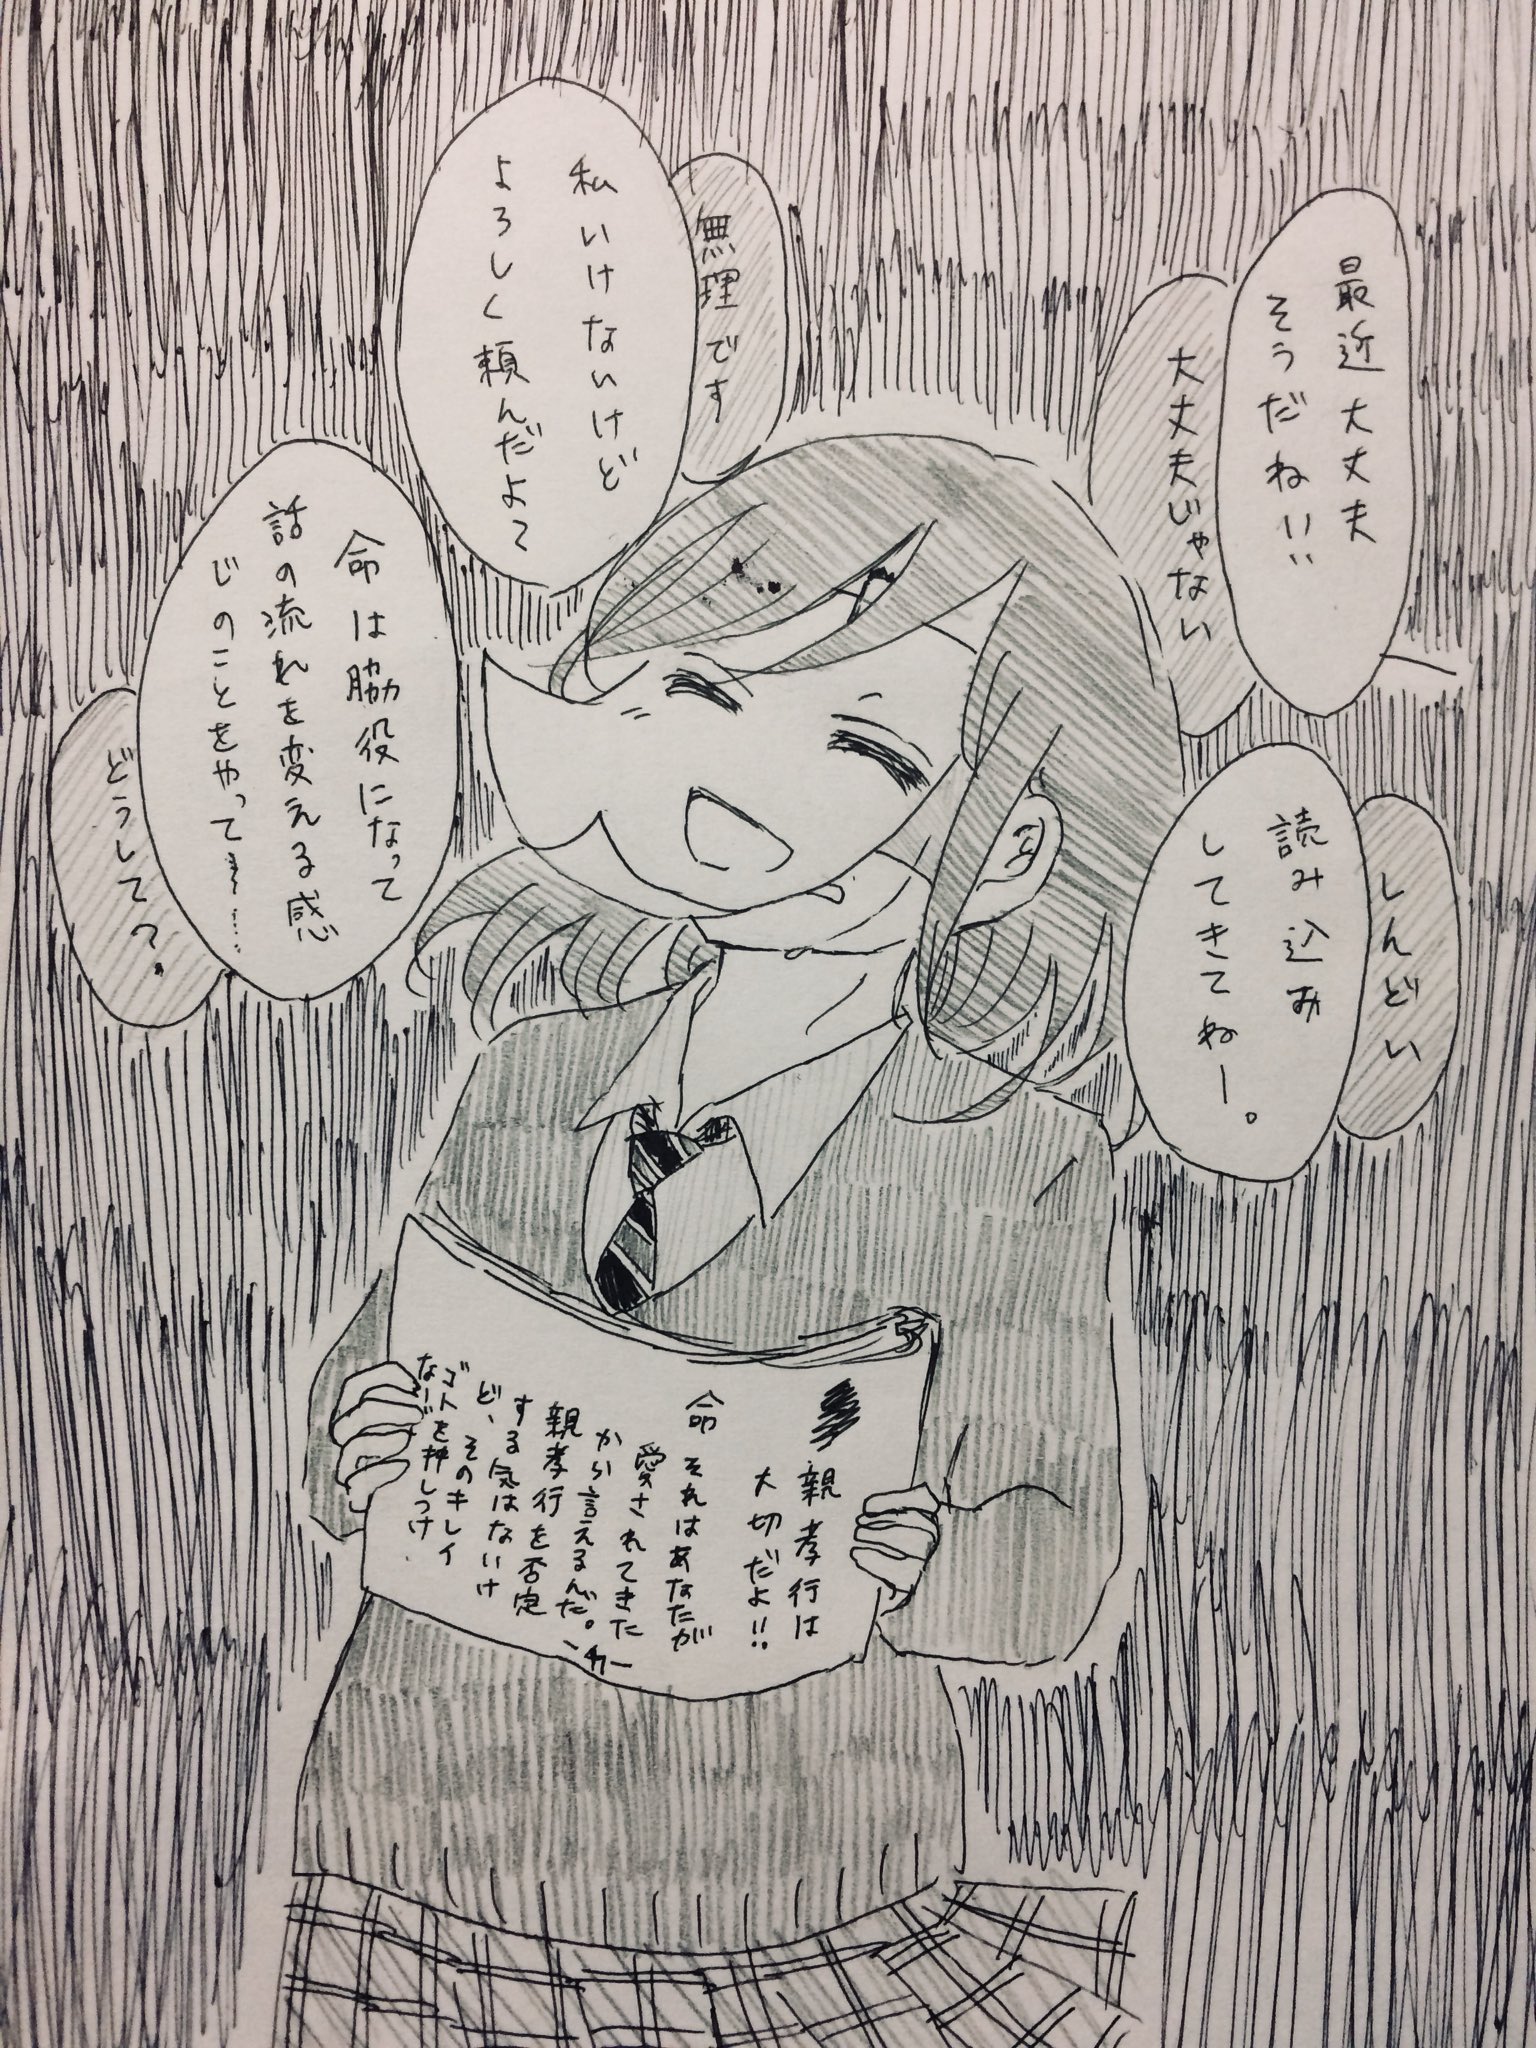 最近大丈夫
そうだねい!!
大丈夫じゃない
しんどい
読み込み
してきてねー。
無理です
私いけないけど
よろしく頼んだよて
命は脇役になって
話の流れを変える感
じのことをやって
どうして?
親孝行は
大切だよ!!
命 それはあなたが
愛されてきた
から言えるんだ。
親孝行を否定
する気はないけ
ど、そのキレイ
ゴトを押しつけ